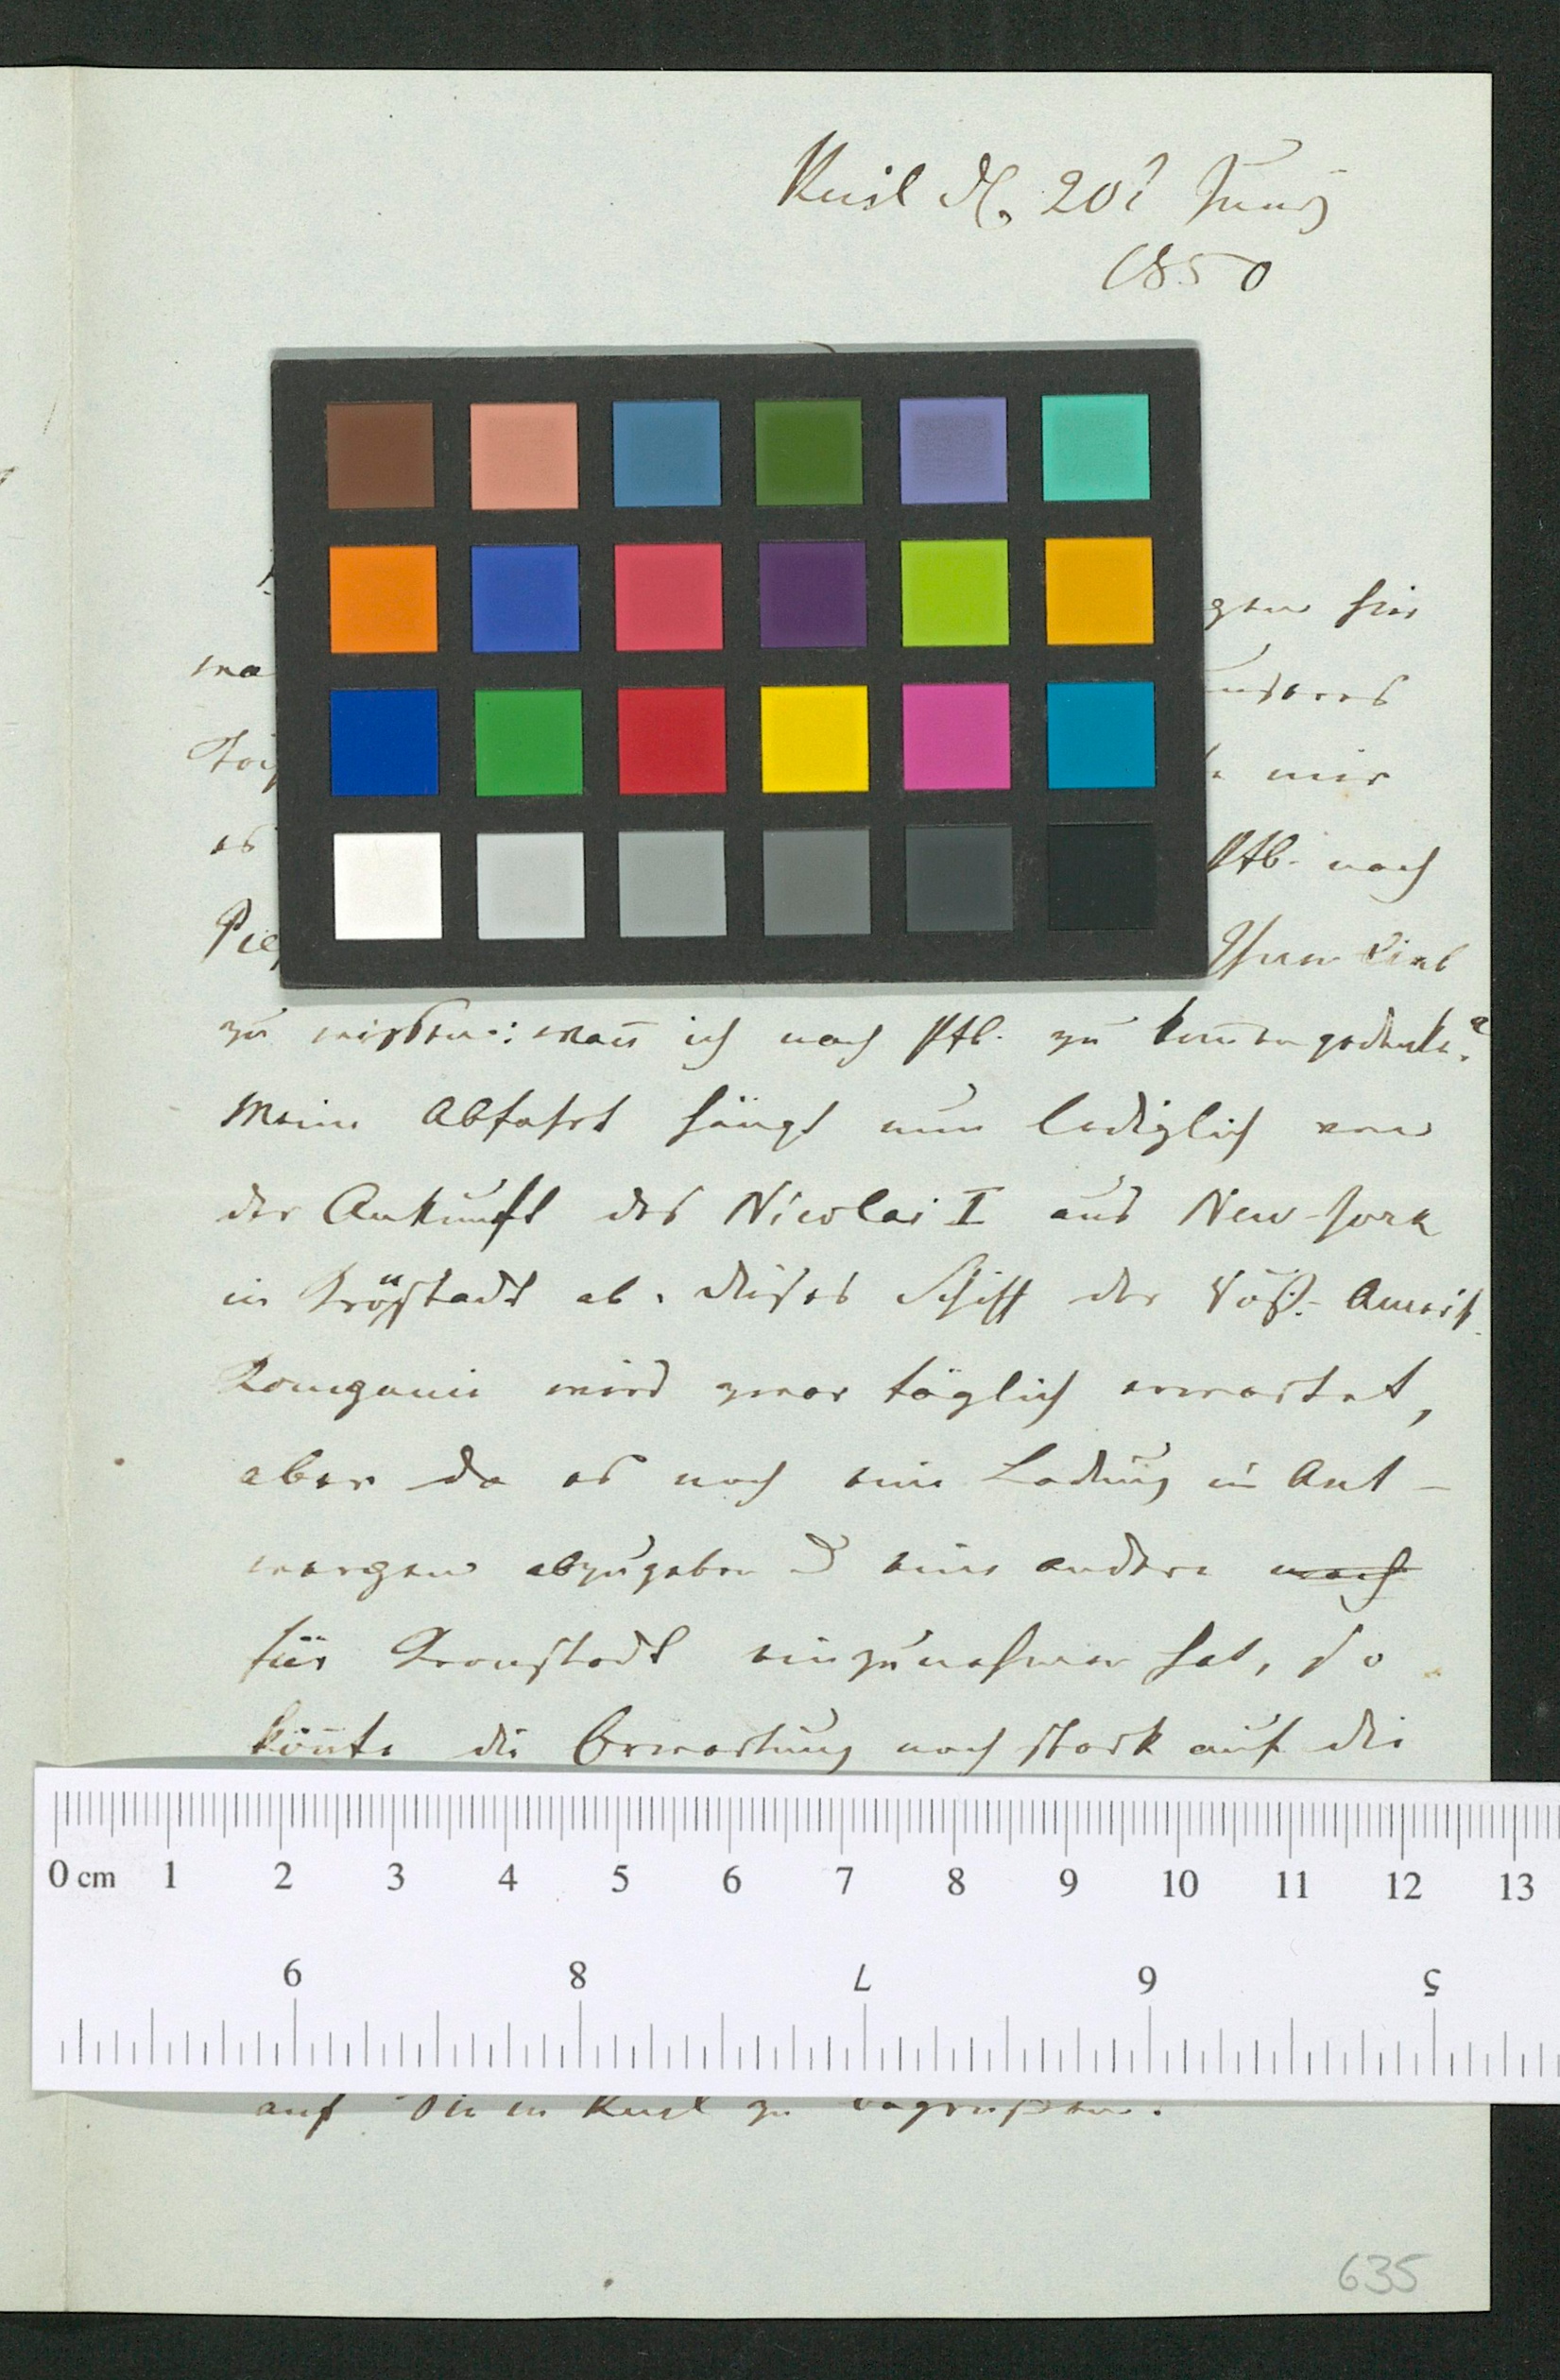 Kusl d. 20t Juny
1850
gen hier
wa
unseres
mir
es
Ptb. nach
Ihnen lieb
zu wissen: wan̄ ich nach Ptb. zu kom̄en gedenke?
Meine Abfahrt hängt nun lediglich von
der Ankunft des Nicolai I aus New-York
in Kronstadt ab. Dieses Schiff der Amerik.
Kompanie wird zwar täglich erwartet,
aber da es noch eine Ladung in Ant-
werpen abzugeben u eine andere noch
für Kronstadt einzunehmen hat, so
kön̄te die Erwartung noch stark auf die
0 cm 1 2 3 4 5 6 7 8 9 10 11 12 13
9 8 7 6 5
auf Sie in Kusl zu begrüßen.
635